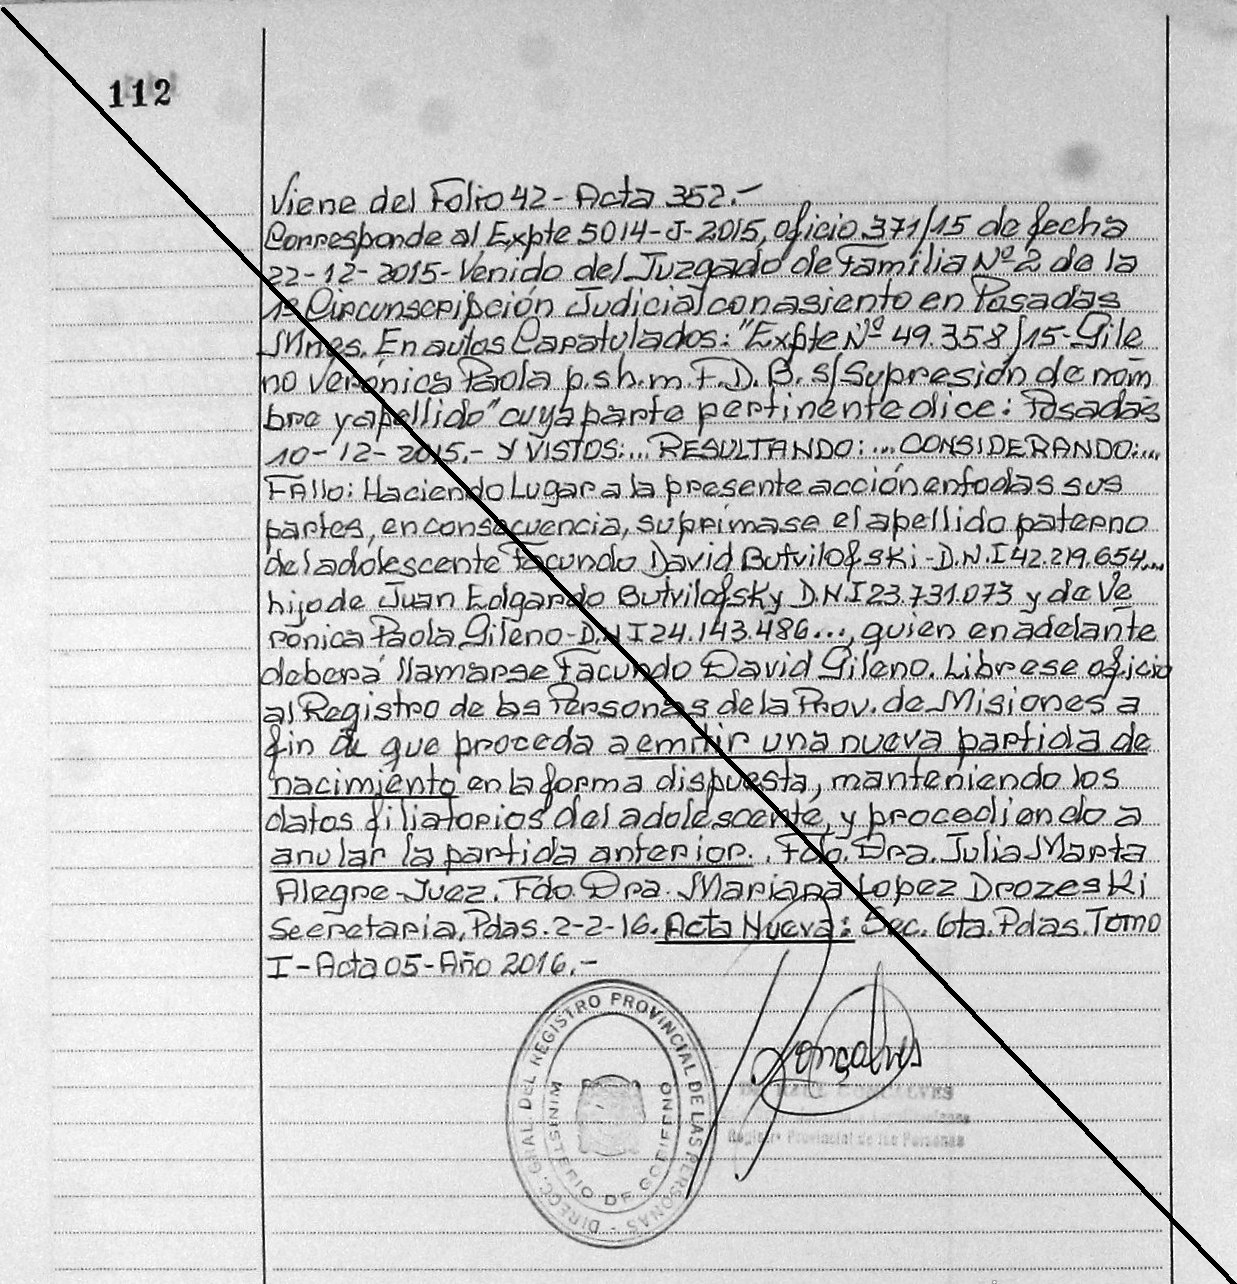 112
Viene del Folio 42 - Acta 352.-
Corresponde al Expte 5014-J-2015, oficio 371/15 de fecha
22-12-2015- Venido del Juzgado de Familia Nº 2 de la
1ª Circunscripción Judicial con asiento en Posadas
Mnes. En autos Caratulados: "Expte Nº 49.358/15- Gile
no Verónica Paola p.s.h.m. F.D.B. s/ Supresión de nom
bre y apellido" cuya parte pertinente dice: Posadas
10-12-2015.- Y VISTOS:... RESULTANDO:... CONSIDERANDO:...
FAllo: Haciendo Lugar a la presente acción en todas sus
partes, en consecuencia, suprimase el apellido paterno
del adolescente Facundo David Butvilofski - D.N.I 42.219.654...
hijo de Juan Edgardo Butvilofsky D.N.I 23.731.073 y de Ve
ronica Paola Gileno - D.N I 24.143.486..., quien en adelante
deberá llamarse Facundo David Gileno. Librese oficio
al Registro de las Personas de la Prov. de Misiones a
fin de que proceda a emitir una nueva partida de
nacimiento en la forma dispuesta, manteniendo los
datos filiatorios del adolescente, y procediendo a
anular la partida anterior. . Fdo. Dra. Julia Marta
Alegre - Juez. Fdo. Dra. Mariana Lopez Drozeski
Secretaria, Pdas. 2-2-16. Acta Nueva: Sec. 6ta. Pdas. Tomo
I - Acta 05 - Año 2016.-
DIRECC. GRAL. DEL REGISTRO PROVINCIAL DE LAS PERSONAS
MINISTERIO DE GOBIERNO
Gonçalves
GONCALVES
Provincial de las Personas